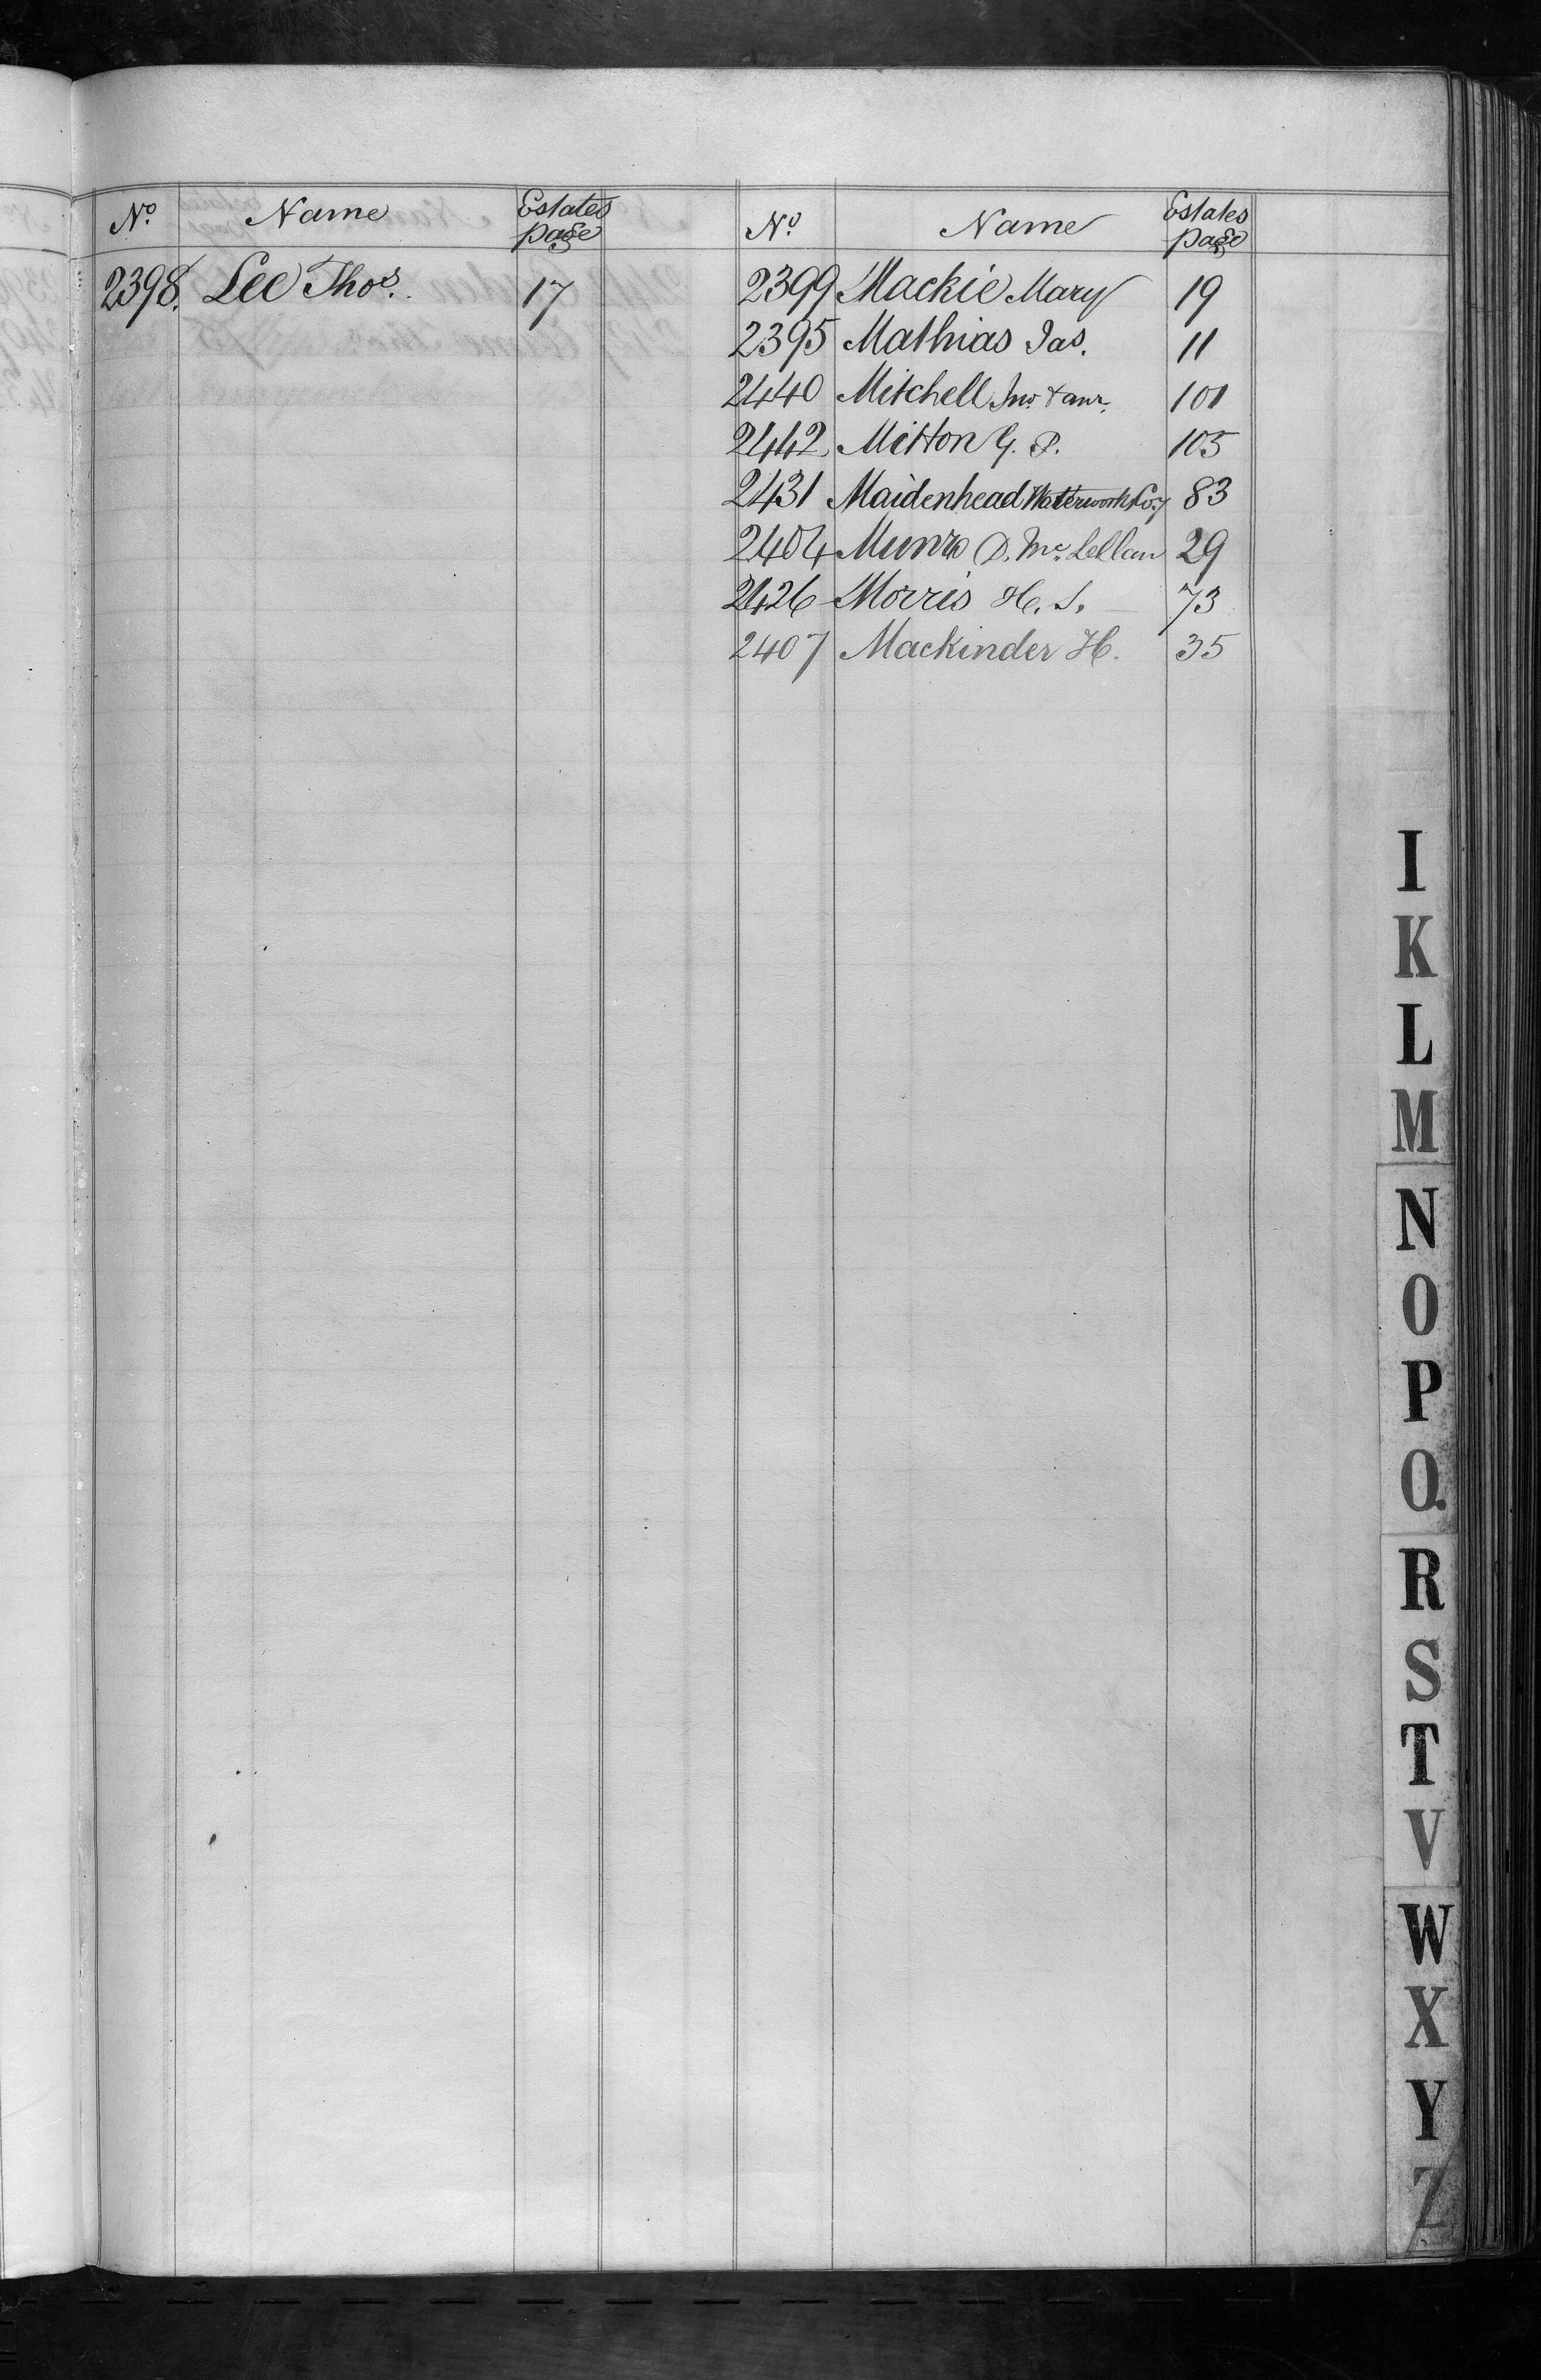 No. Name Estates page
2398. Lee Thos. 17
No. Name Estates page
2399 Mackie Mary 19
2395 Mathias Jas. 11
2440 Mitchell Jno. & anr. 101
2442 Mitton G. P. 105
2431 Maidenhead Waterworks Coy 83
2404 Munro D. Mc. Lellan 29
2426 Morris H. S. 73
2407 Mackinder H. 35
I
K
L
M
N
O
P
Q.
R
S
T
V
W
X
Y
Z